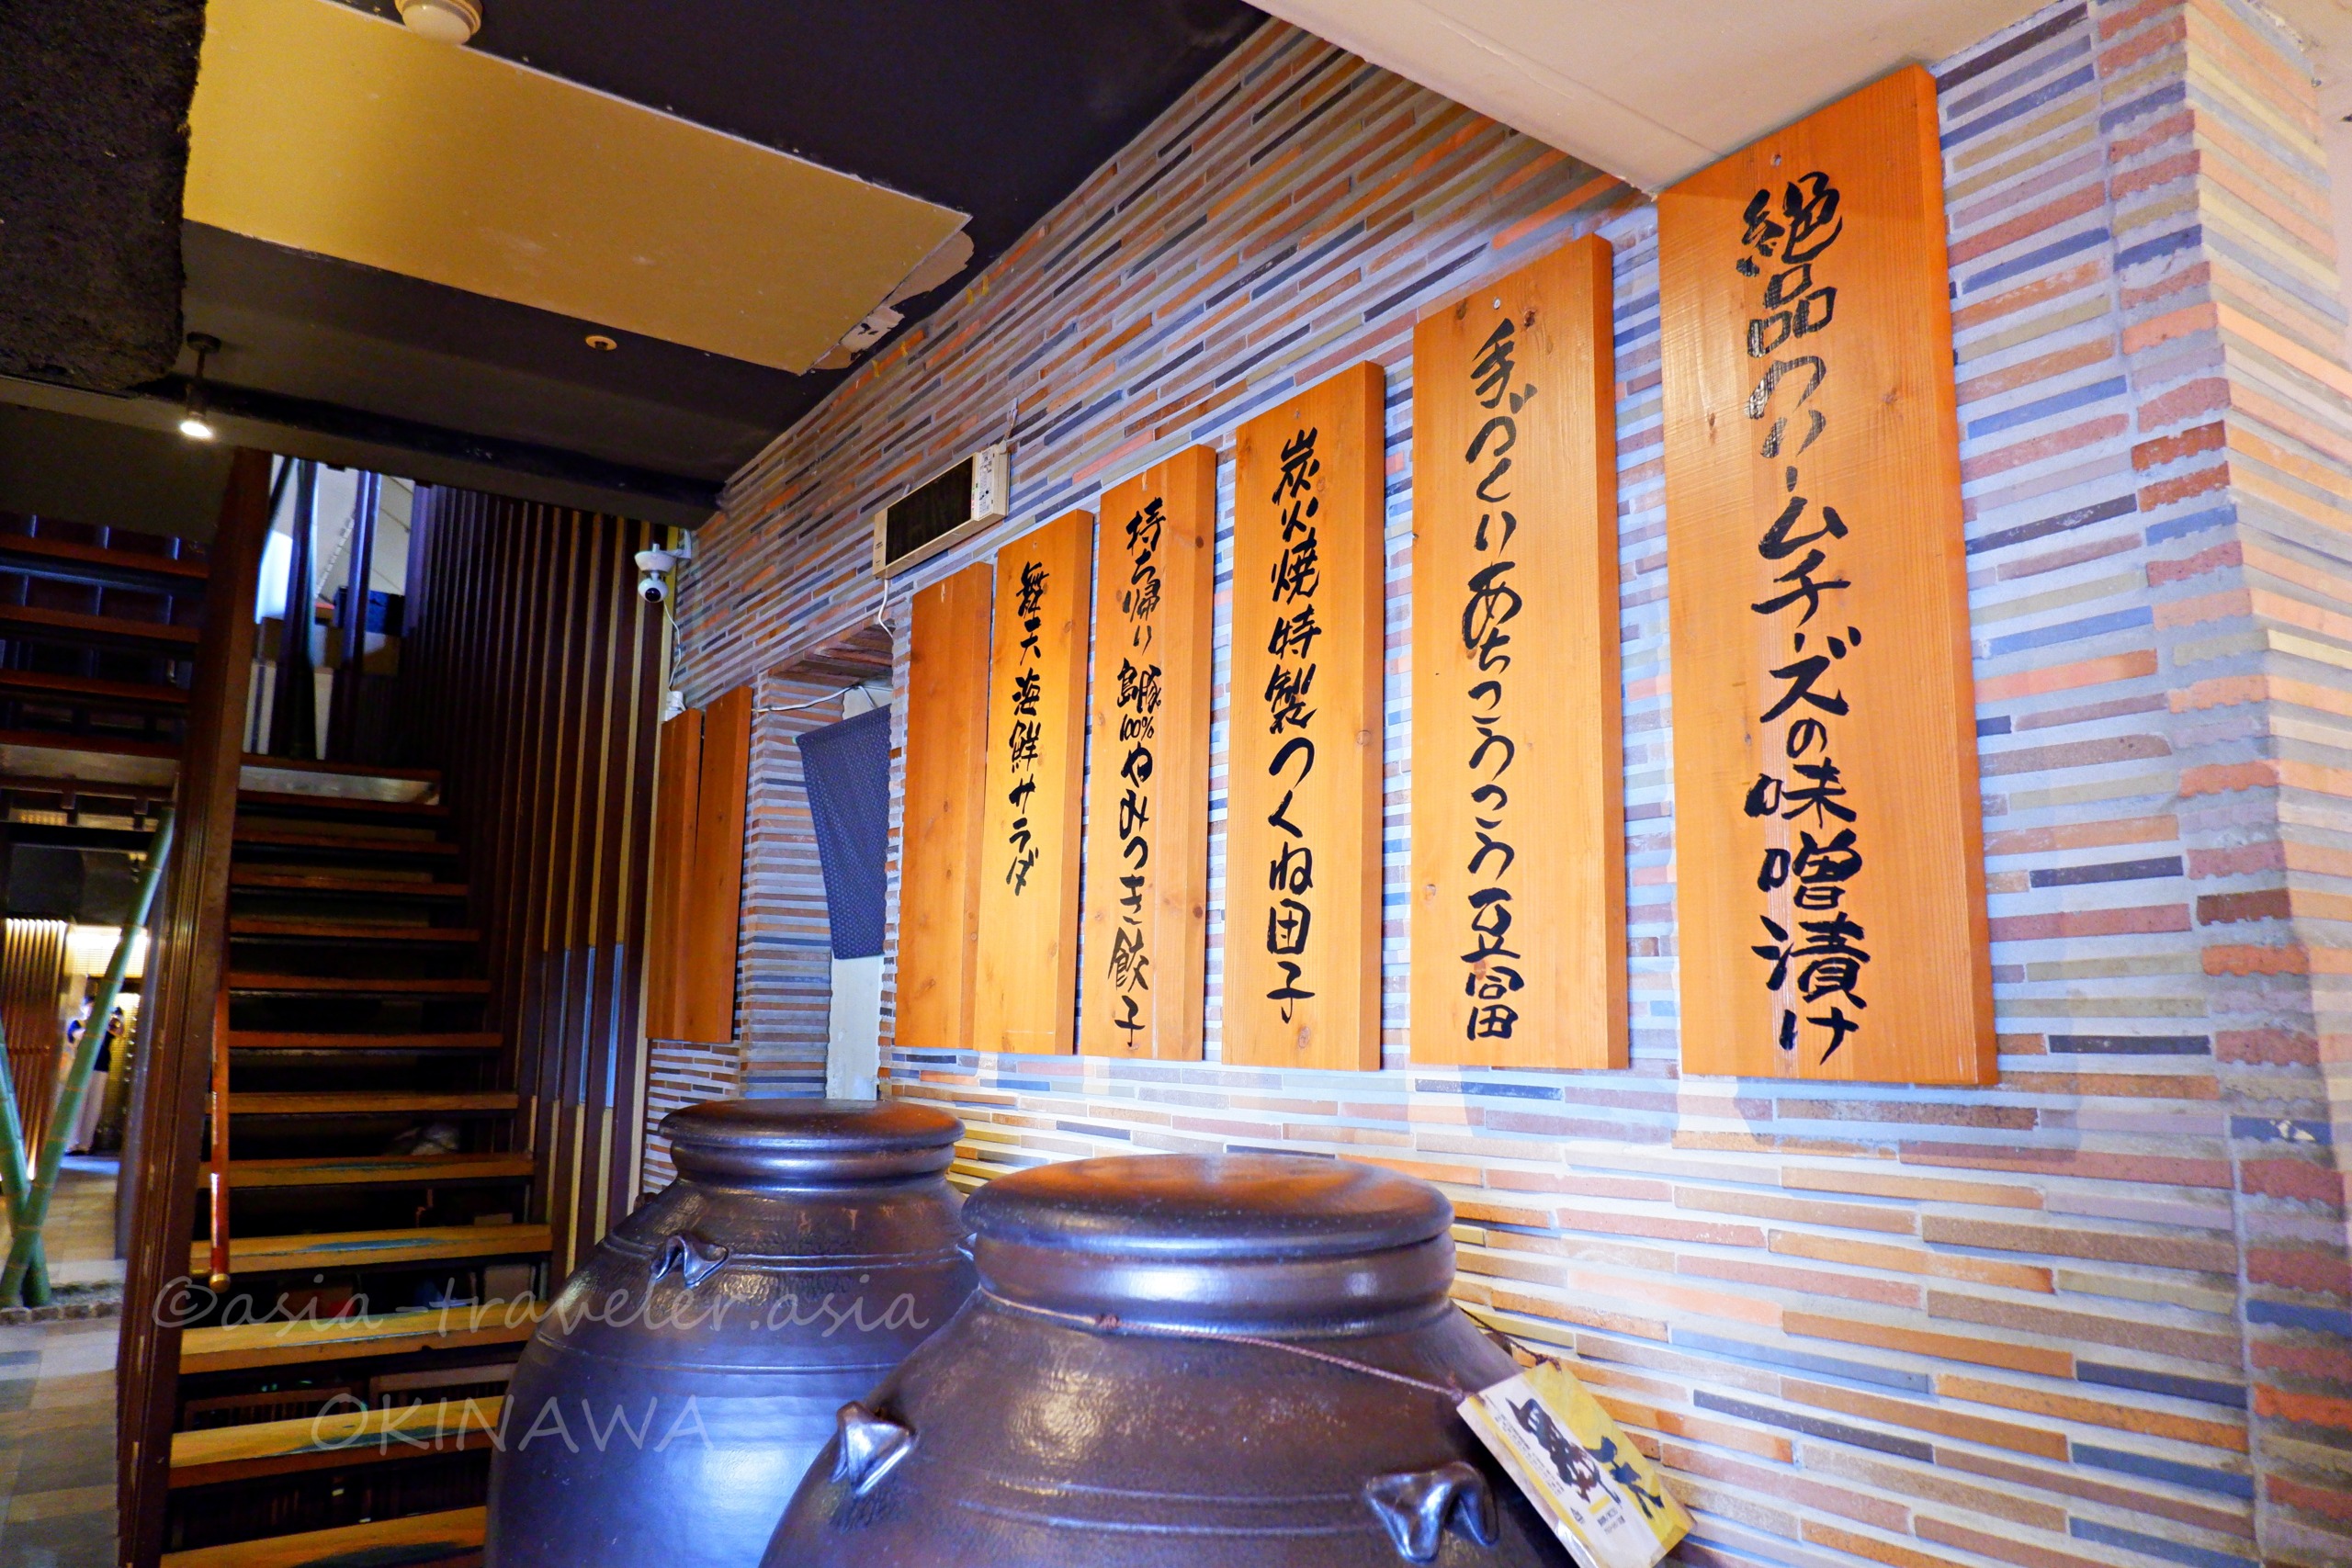 絶品クリームチーズの味噌漬け
手づくりあちこーこー豆冨
炭火焼特製つくね団子
持ち帰り 島豚100%やみつき餃子
舞天海鮮サラダ
©asia-traveler.asia
OKINAWA